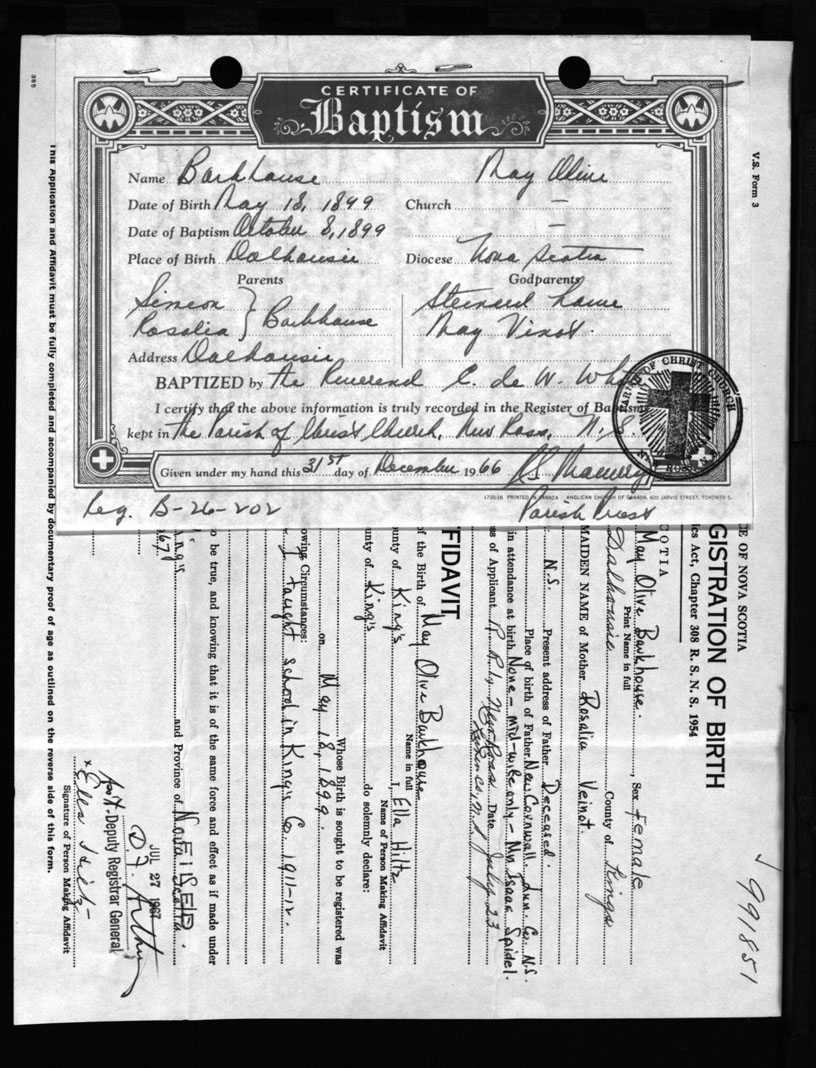 CERTIFICATE OF
Baptism
Name Barkhouse May Olive
Date of Birth May 18, 1899 Church —
Date of Baptism October 8, 1899 —
Place of Birth Dalhousie Diocese Nova Scotia
Parents Godparents
Simeon
Rosalia } Barkhouse
May Vinot.
Address Dalhousie
BAPTIZED by the Reverend E. de W. White
I certify that the above information is truly recorded in the Register of Baptisms
kept in the Parish of Christ Church, New Ross, N.S.
Given under my hand this 31st day of December 1966
Parish Priest
1720-36 PRINTED IN CANADA ANGLICAN CHURCH OF CANADA, 600 JARVIS STREET, TORONTO 5.
PARISH OF CHRIST CHURCH
NEW ROSS N.S.
Reg. B-26-202
V.S. Form 3
991851
CE OF NOVA SCOTIA
GISTRATION OF BIRTH
cs Act, Chapter 308 R. S. N. S. 1954
COTIA
May Olive Barkhouse. , Sex female
Print Name in full
Dalhousie County of Kings
MAIDEN NAME of Mother Rosalia Veinot.
N.S. Present address of Father Deceased.
Place of birth of Father New Cornwall, Lun. Co. N.S.
in attendance at birth None - mid-wife only - Mrs Isaac Spidel.
ss of Applicant R.R.1, New Ross Date July 23
Lunen Co, N.S.
FIDAVIT
of the Birth of May Olive Barkhouse
Name in full
I, Ella Hiltz
Name of Person Making Affidavit
ounty of King's do solemnly declare:
unty of King's
Whose Birth is sought to be registered was
on May 18, 1899.
owing Circumstances:
I taught school in King's Co. 1911-12.
o be true, and knowing that it is of the same force and effect as if made under
King's and Province of Nova Scotia.
1967
FILED
JUL 27 1967
Asst-Deputy Registrar General
x Ella Hiltz
Signature of Person Making Affidavit
This Application and Affidavit must be fully completed and accompanied by documentary proof of age as outlined on the reverse side of this form.
365